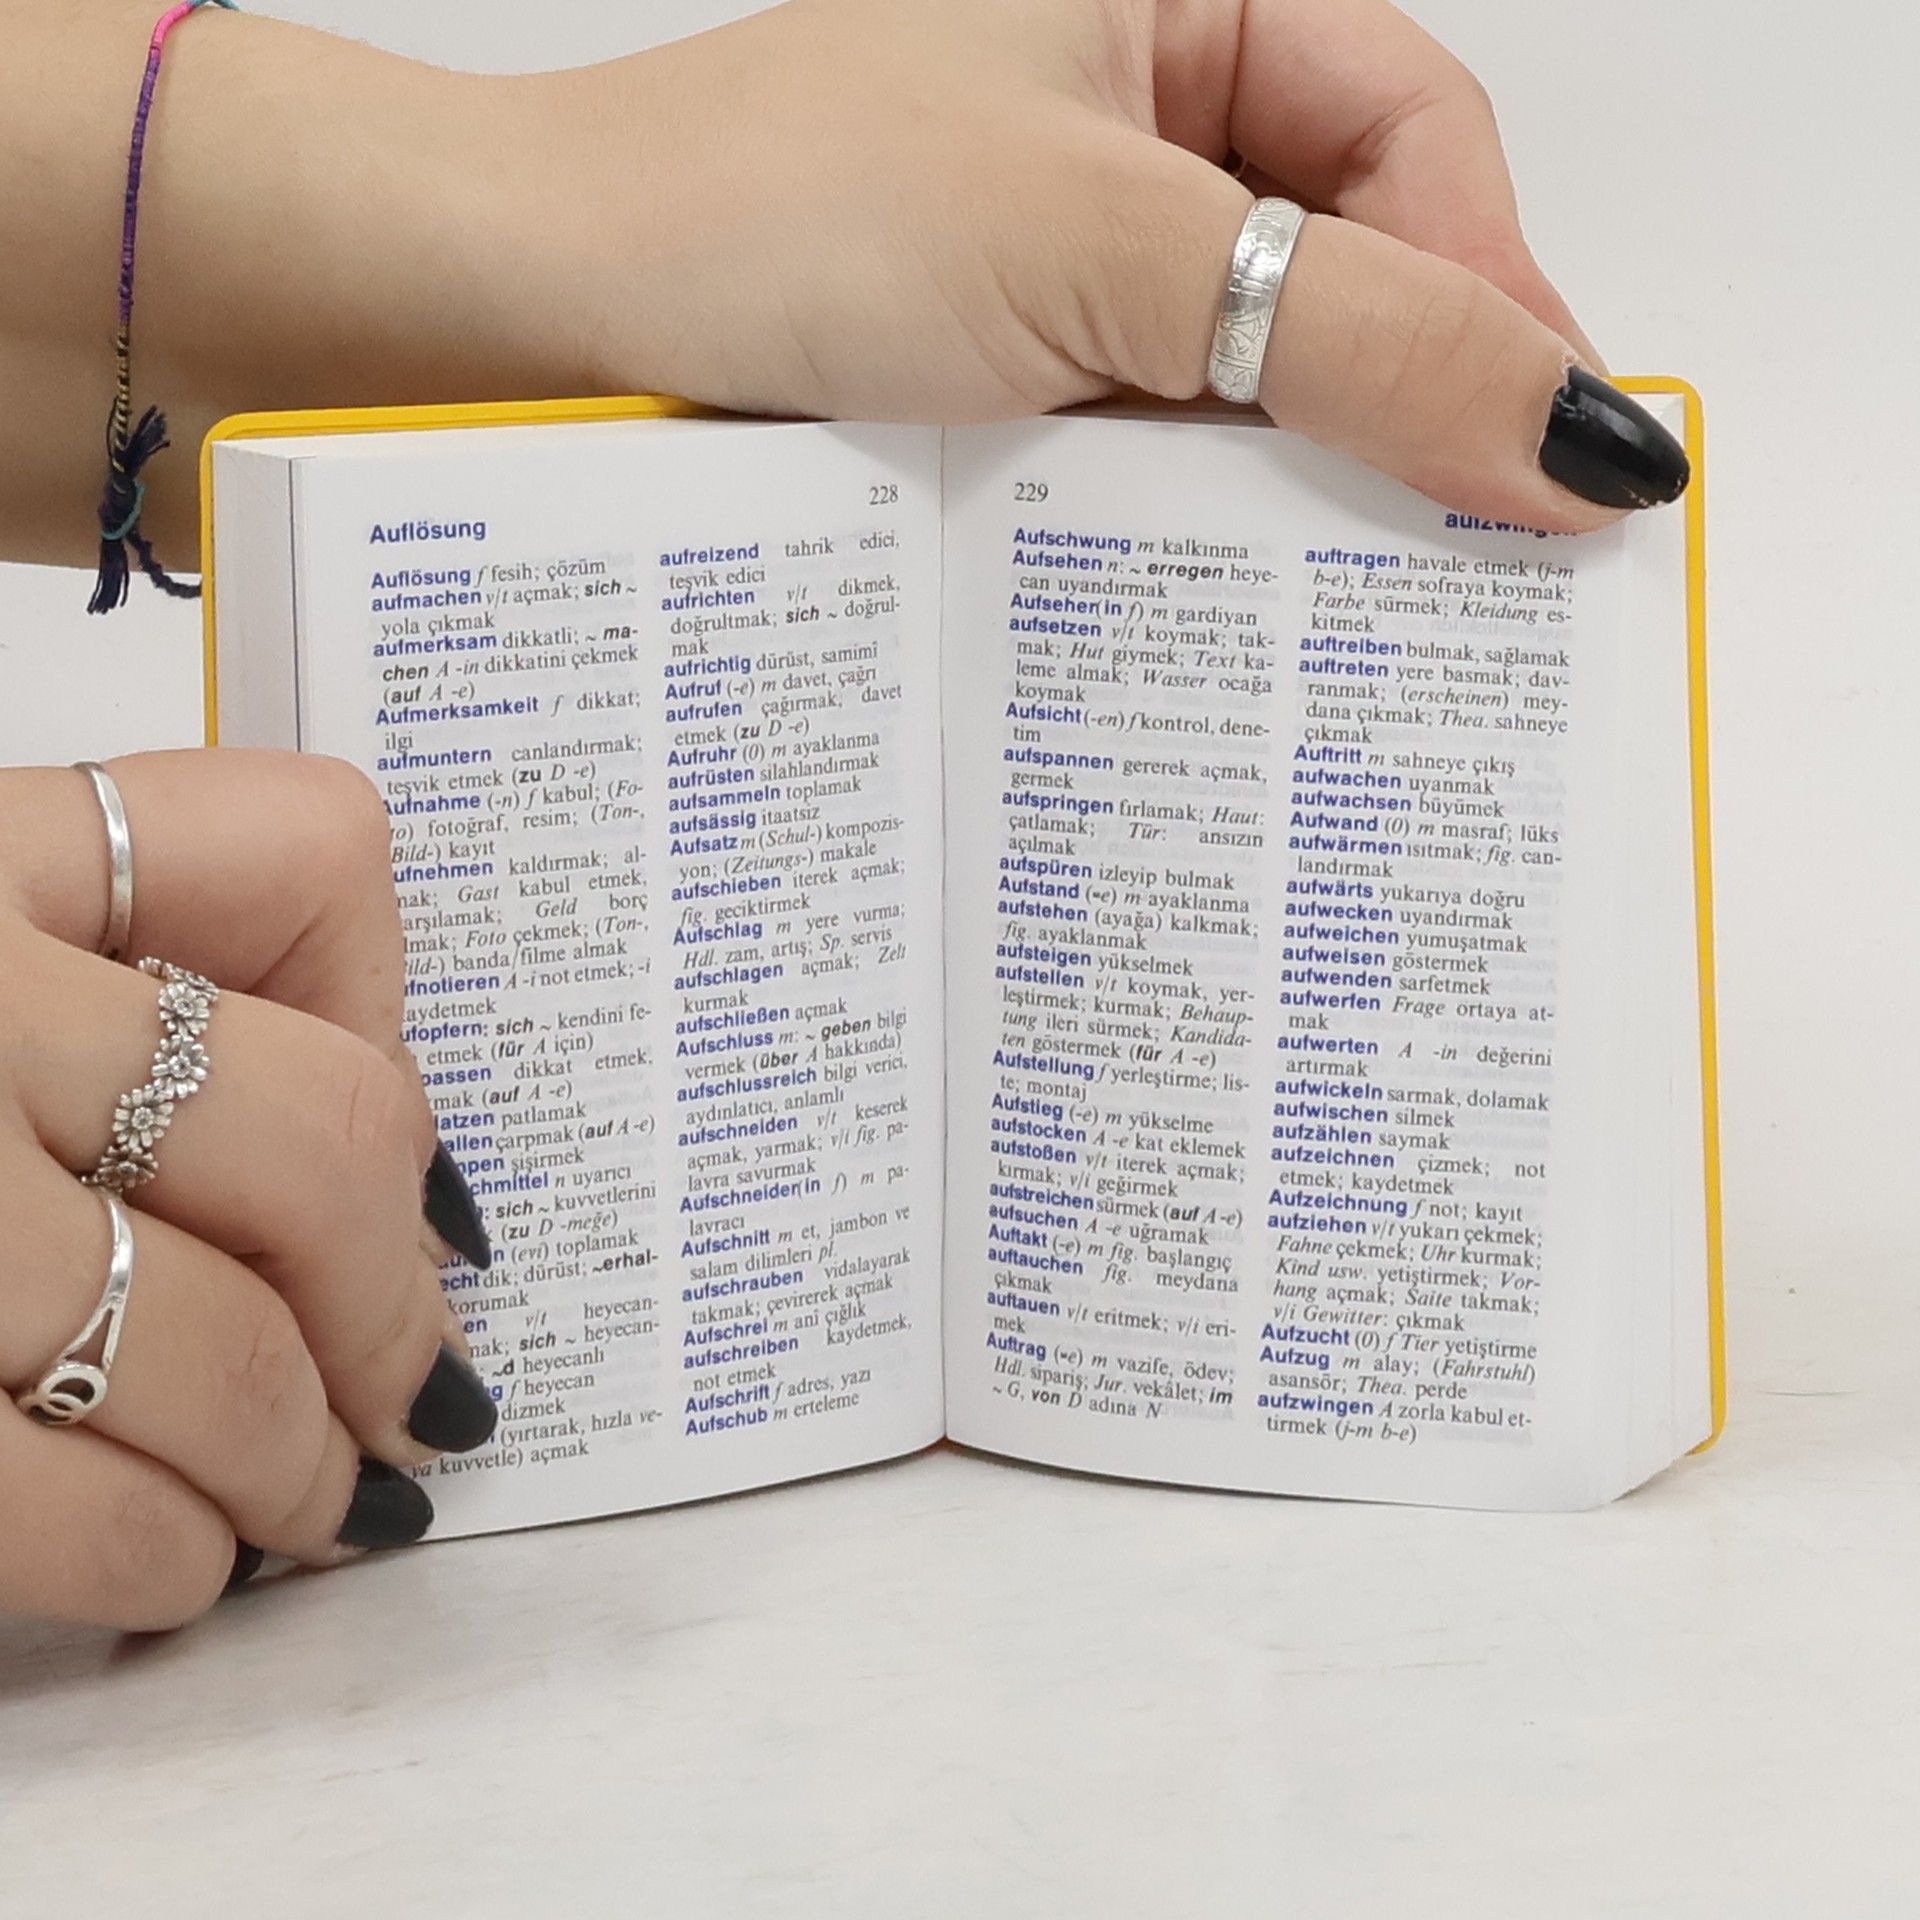 228
Auflösung
Auflösung f fesih; çözüm
aufmachen v/t açmak; sich ~
yola çıkmak
aufmerksam dikkatli; ~ ma-
chen A -in dikkatini çekmek
(auf A -e)
Aufmerksamkeit f dikkat;
ilgi
aufmuntern canlandırmak;
teşvik etmek (zu D -e)
Aufnahme (-n) f kabul; (Fo-
to) fotoğraf, resim; (Ton-,
Bild-) kayıt
ufnehmen kaldırmak; al-
mak; Gast kabul etmek,
arşılamak; Geld borç
lmak; Foto çekmek; (Ton-,
ild-) banda/filme almak
fnotieren A -i not etmek; -i
aydetmek
ufopfern: sich ~ kendini fe-
etmek (für A için)
passen dikkat etmek,
mak (auf A -e)
latzen patlamak
allen çarpmak (auf A -e)
npen şişirmek
chmittel n uyarıcı
: sich ~ kuvvetlerini
(zu D -meğe)
n (evi) toplamak
echt dik; dürüst; ~erhal-
korumak
en v/t heyecan-
mak; sich ~ heyecan-
; ~d heyecanlı
g f heyecan
dizmek
(yırtarak, hızla ve-
ya kuvvetle) açmak
aufreizend tahrik edici,
teşvik edici
aufrichten v/t dikmek,
doğrultmak; sich ~ doğrul-
mak
aufrichtig dürüst, samimî
Aufruf (-e) m davet, çağrı
aufrufen çağırmak, davet
etmek (zu D -e)
Aufruhr (0) m ayaklanma
aufrüsten silahlandırmak
aufsammeln toplamak
aufsässig itaatsız
Aufsatz m (Schul-) kompozis-
yon; (Zeitungs-) makale
aufschieben iterek açmak;
fig. geciktirmek
Aufschlag m yere vurma;
Hdl. zam, artış; Sp. servis
aufschlagen açmak; Zelt
kurmak
aufschließen açmak
Aufschluss m: ~ geben bilgi
vermek (über A hakkında)
aufschlussreich bilgi verici,
aydınlatıcı, anlamlı
aufschneiden v/t keserek
açmak, yarmak; v/i fig. pa-
lavra savurmak
Aufschneider(in f) m pa-
lavracı
Aufschnitt m et, jambon ve
salam dilimleri pl.
aufschrauben vidalayarak
takmak; çevirerek açmak
Aufschrei m anî çığlık
aufschreiben kaydetmek,
not etmek
Aufschrift f adres, yazı
Aufschub m erteleme
229
aufzwingen
Aufschwung m kalkınma
Aufsehen n: ~ erregen heye-
can uyandırmak
Aufseher(in f) m gardiyan
aufsetzen v/t koymak; tak-
mak; Hut giymek; Text ka-
leme almak; Wasser ocağa
koymak
Aufsicht (-en) f kontrol, dene-
tim
aufspannen gererek açmak,
germek
aufspringen fırlamak; Haut:
çatlamak; Tür: ansızın
açılmak
aufspüren izleyip bulmak
Aufstand (⸚e) m ayaklanma
aufstehen (ayağa) kalkmak;
fig. ayaklanmak
aufsteigen yükselmek
aufstellen v/t koymak, yer-
leştirmek; kurmak; Behaup-
tung ileri sürmek; Kandida-
ten göstermek (für A -e)
Aufstellung f yerleştirme; lis-
te; montaj
Aufstieg (-e) m yükselme
aufstocken A -e kat eklemek
aufstoßen v/t iterek açmak;
kırmak; v/i geğirmek
aufstreichen sürmek (auf A -e)
aufsuchen A -e uğramak
Auftakt (-e) m fig. başlangıç
auftauchen fig. meydana
çıkmak
auftauen v/t eritmek; v/i eri-
mek
Auftrag (⸚e) m vazife, ödev;
Hdl. sipariş; Jur. vekâlet; im
~ G, von D adına N
auftragen havale etmek (j-m
b-e); Essen sofraya koymak;
Farbe sürmek; Kleidung es-
kitmek
auftreiben bulmak, sağlamak
auftreten yere basmak; dav-
ranmak; (erscheinen) mey-
dana çıkmak; Thea. sahneye
çıkmak
Auftritt m sahneye çıkış
aufwachen uyanmak
aufwachsen büyümek
Aufwand (0) m masraf; lüks
aufwärmen ısıtmak; fig. can-
landırmak
aufwärts yukarıya doğru
aufwecken uyandırmak
aufweichen yumuşatmak
aufweisen göstermek
aufwenden sarfetmek
aufwerfen Frage ortaya at-
mak
aufwerten A -in değerini
artırmak
aufwickeln sarmak, dolamak
aufwischen silmek
aufzählen saymak
aufzeichnen çizmek; not
etmek; kaydetmek
Aufzeichnung f not; kayıt
aufziehen v/t yukarı çekmek;
Fahne çekmek; Uhr kurmak;
Kind usw. yetiştirmek; Vor-
hang açmak; Saite takmak;
v/i Gewitter: çıkmak
Aufzucht (0) f Tier yetiştirme
Aufzug m alay; (Fahrstuhl)
asansör; Thea. perde
aufzwingen A zorla kabul et-
tirmek (j-m b-e)